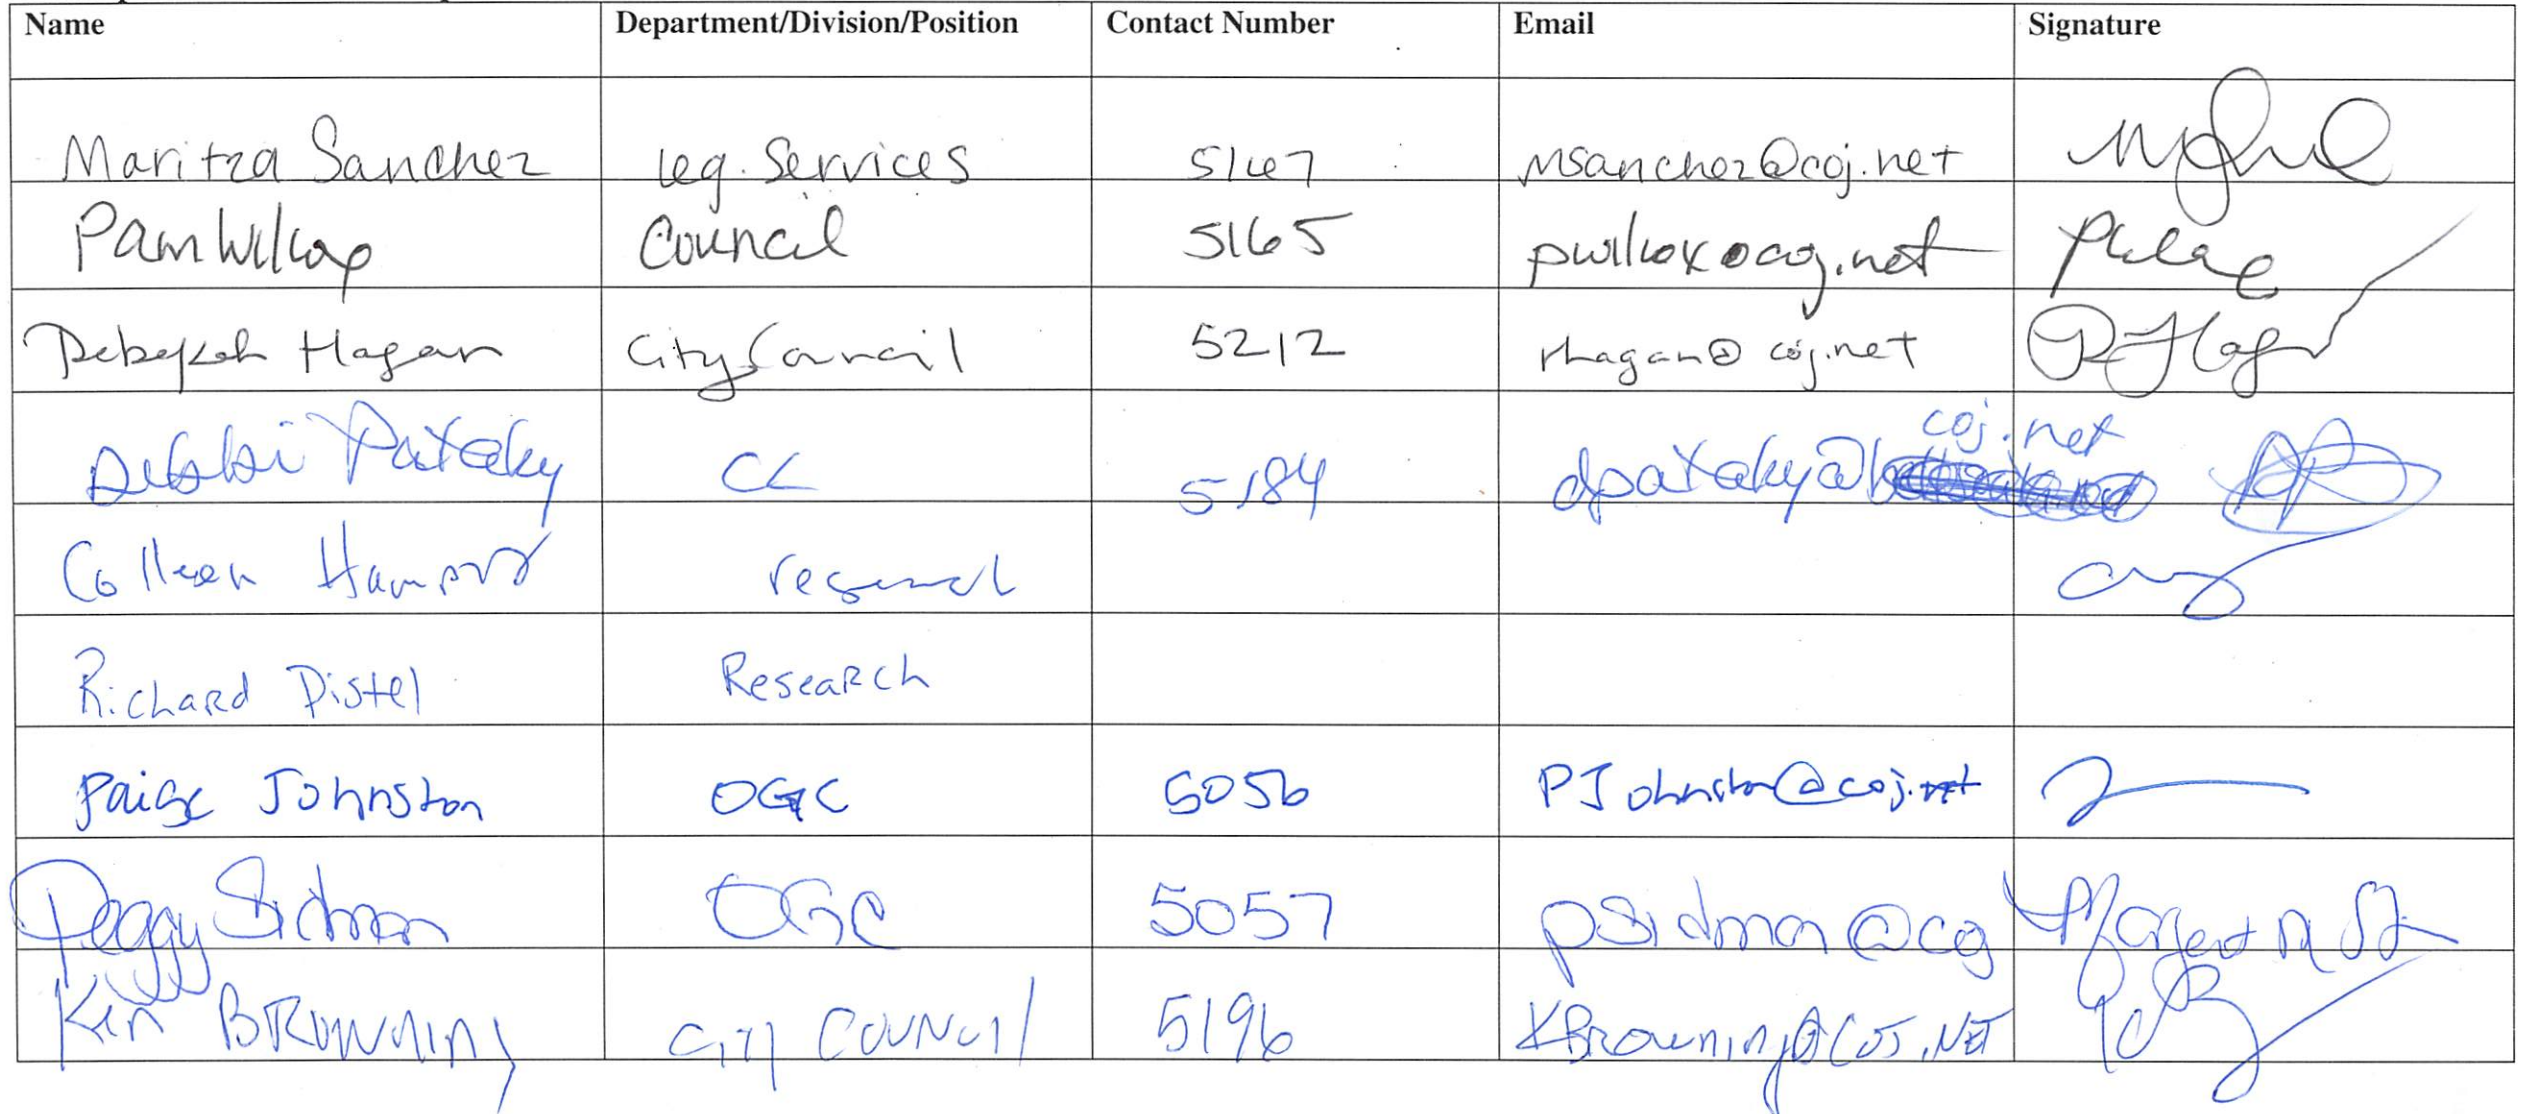 Name Department/Division/Position Contact Number Email Signature
Maritza Sanchez Leg. Services 5147 msanchez@coj.net
Pam Wilcox Council 5165 pwilcox@coj.net
Rebekah Hagan City Council 5212 rhagan@coj.net
coj.net
Debbi Pataky CC 5184 dpataky@
Colleen Hampsey research
Richard Distel Research
Paige Johnston OGC 5056 PJohnston@coj.net
Peggy Sidman OGC 5057 psidman@coj Margaret M
Ken BROWNING City COUNCIl 5196 KBrowning@COJ.NET